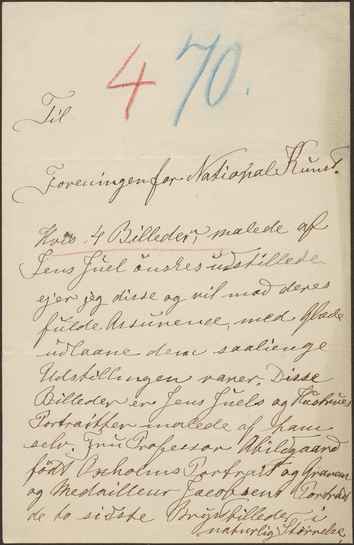 4 70.
Til
Foreningen for National Kunst.
Hvis 4 Billeder, malede af
Jens Juel önskes udstillede
ejer jeg disse og vil mod deres
fulde Assurence, med Glæde
udlaane dem saalænge
Udstillingen varer. Disse
Billeder er Jens Juels og Hustrues
Portraitter malede af ham
selv. Fru Professor Abildgaard
født Oxholms Portrait og Gravem
og Medailleur Jacobsens Portrait
de to sidste Brystbilleder i
naturlig Størrelse